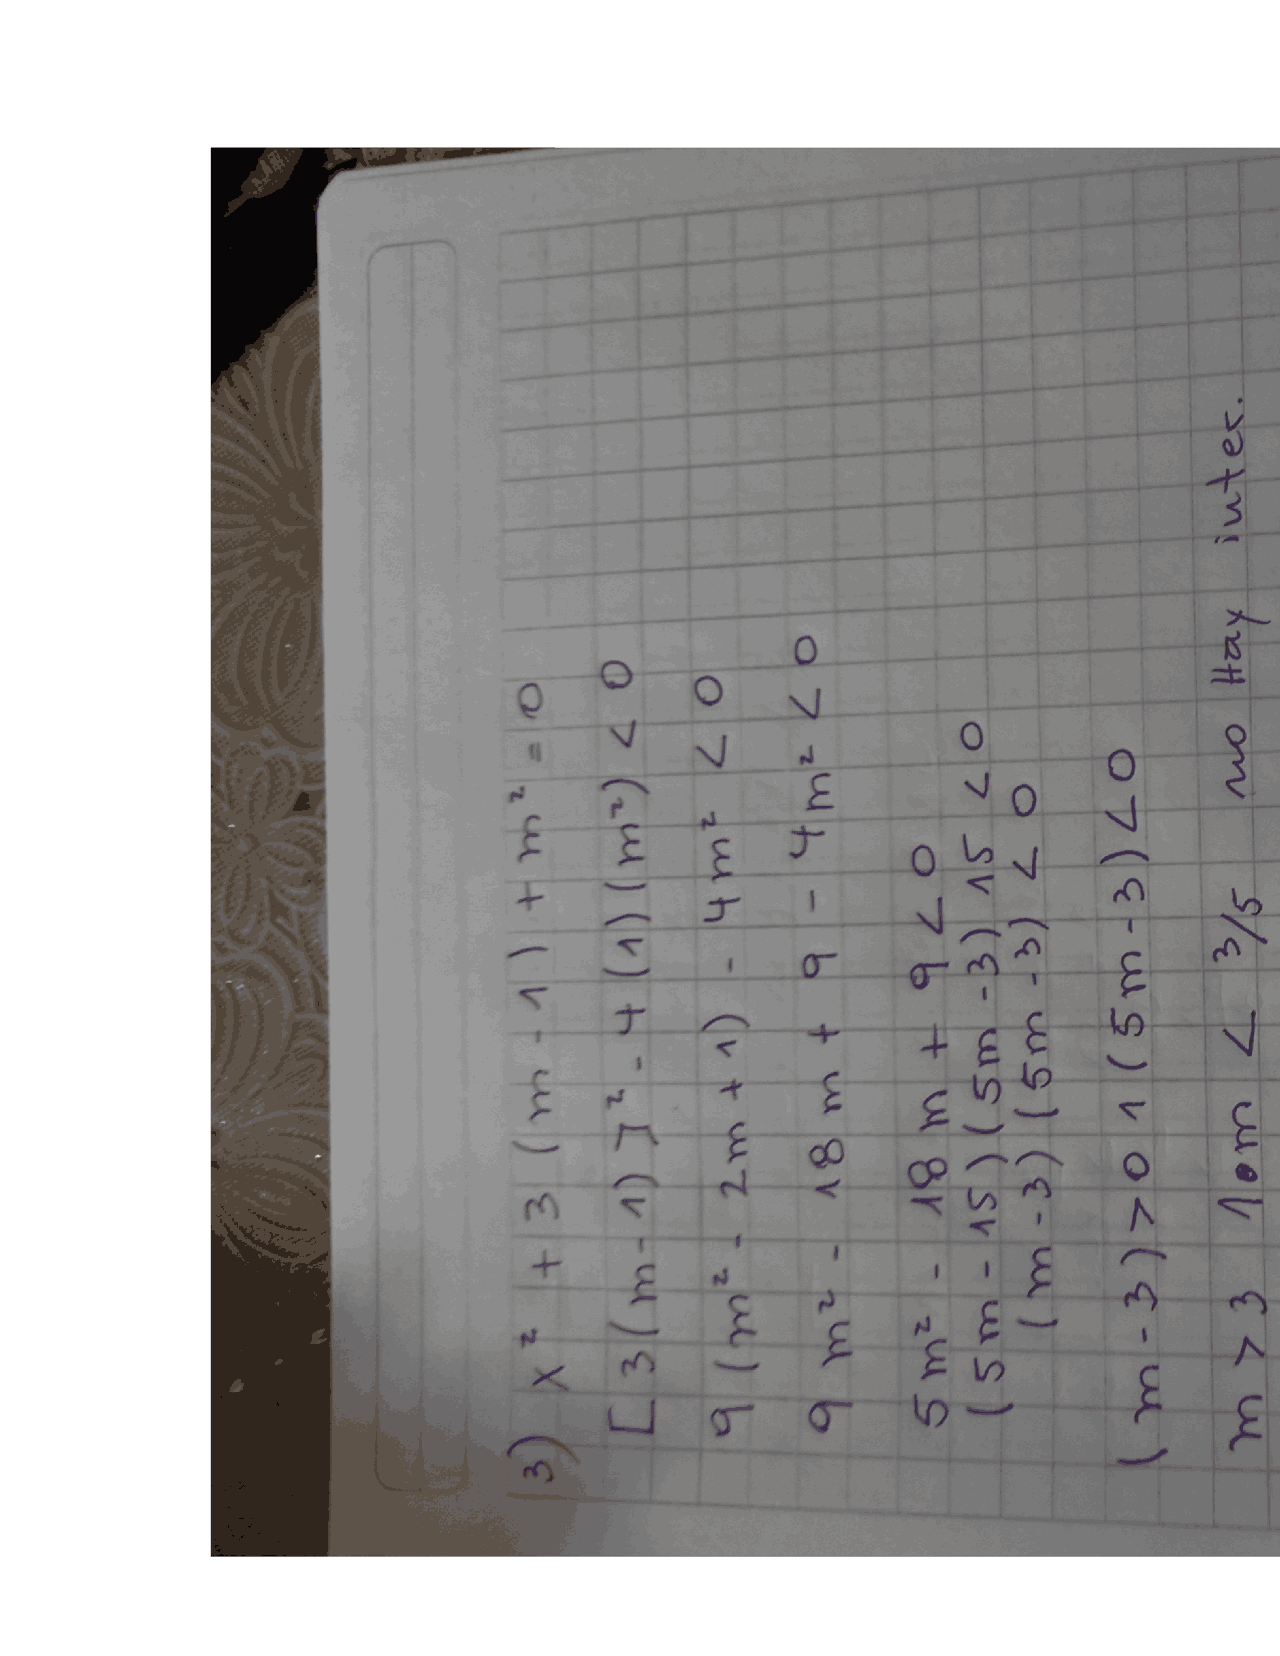 3) x² + 3 (m - 1) + m² = 0
[ 3 (m - 1) ]² - 4 (1) (m²) < 0
9 (m² - 2m + 1) - 4m² < 0
9 m² - 18 m + 9 - 4m² < 0
5m² - 18 m + 9 < 0
(5m - 15) (5m - 3) 15 < 0
(m - 3) (5m - 3) < 0
(m - 3) > 0 1 (5m - 3) < 0
m > 3 1 m < 3/5 no Hay inter.